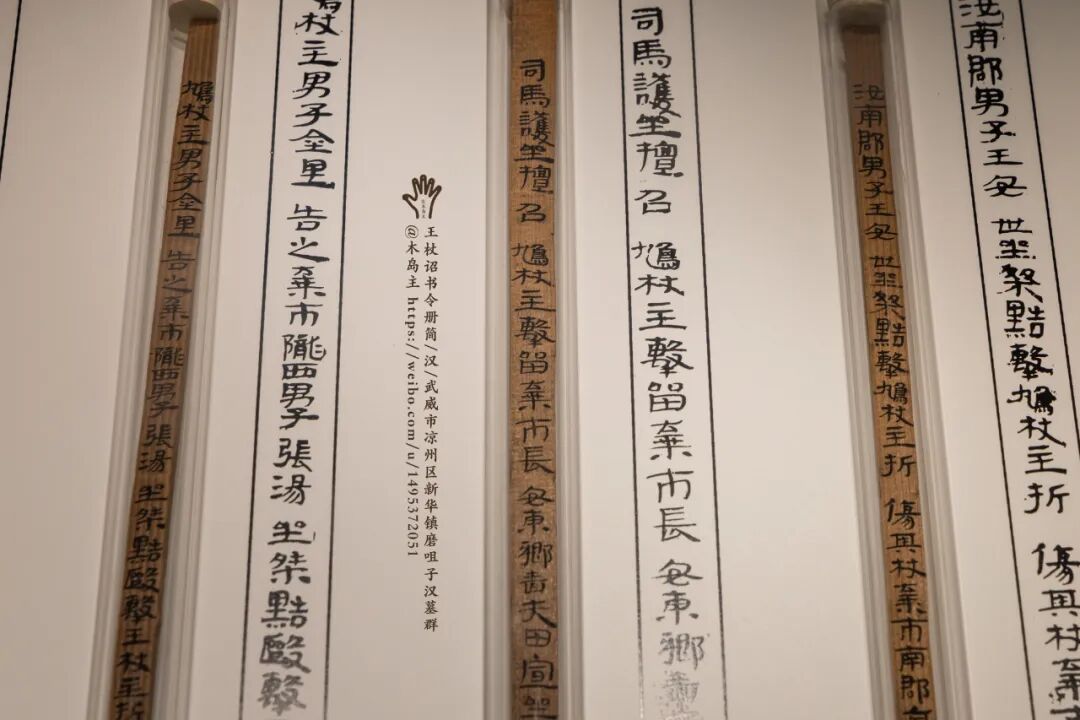 汝南郡男子王安世坐桀黠擊鳩杖主折傷其杖棄
汝南郡男子王安世坐桀黠擊鳩杖主折傷其杖棄市南郡
司馬護坐擅召鳩杖主擊留棄市長安東鄉
司馬護坐擅召鳩杖主擊留棄市長安東鄉嗇夫田宣坐
王杖诏书令册简/汉/武威市凉州区新华镇磨咀子汉墓群
@木岛主 https://weibo.com/u/1495372051
鳩杖主男子金里告之棄市隴西男子張湯坐桀黠毆擊
鳩杖主男子金里告之棄市隴西男子張湯坐桀黠毆擊王杖主折